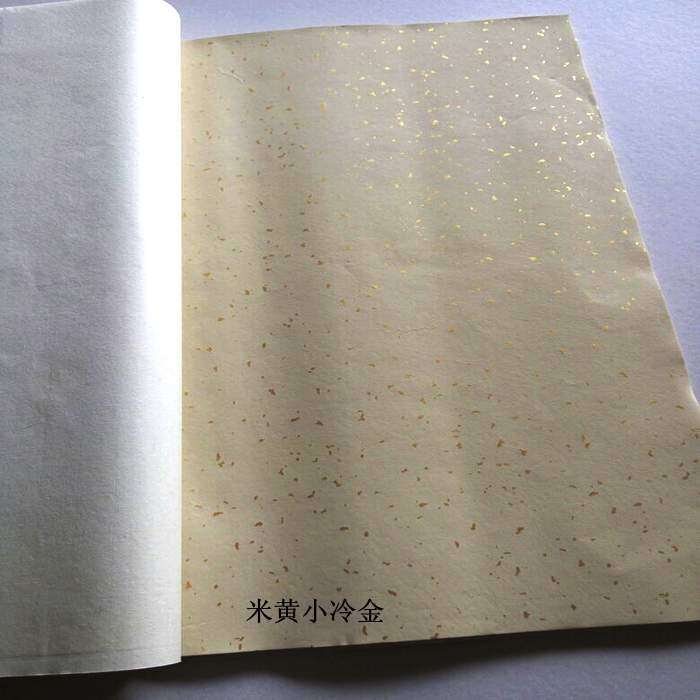 米黄小冷金